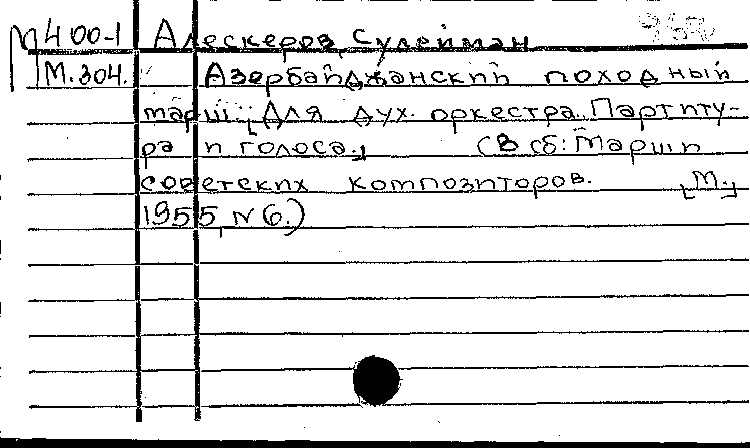 М400-1 Алескеров, Сулейман
М.304. Азербайджанский походный
марш. [Для дух. оркестра. Партиту-
ра и голоса.] (В сб: Марши
советских композиторов. [М.]
1955, N 6.)